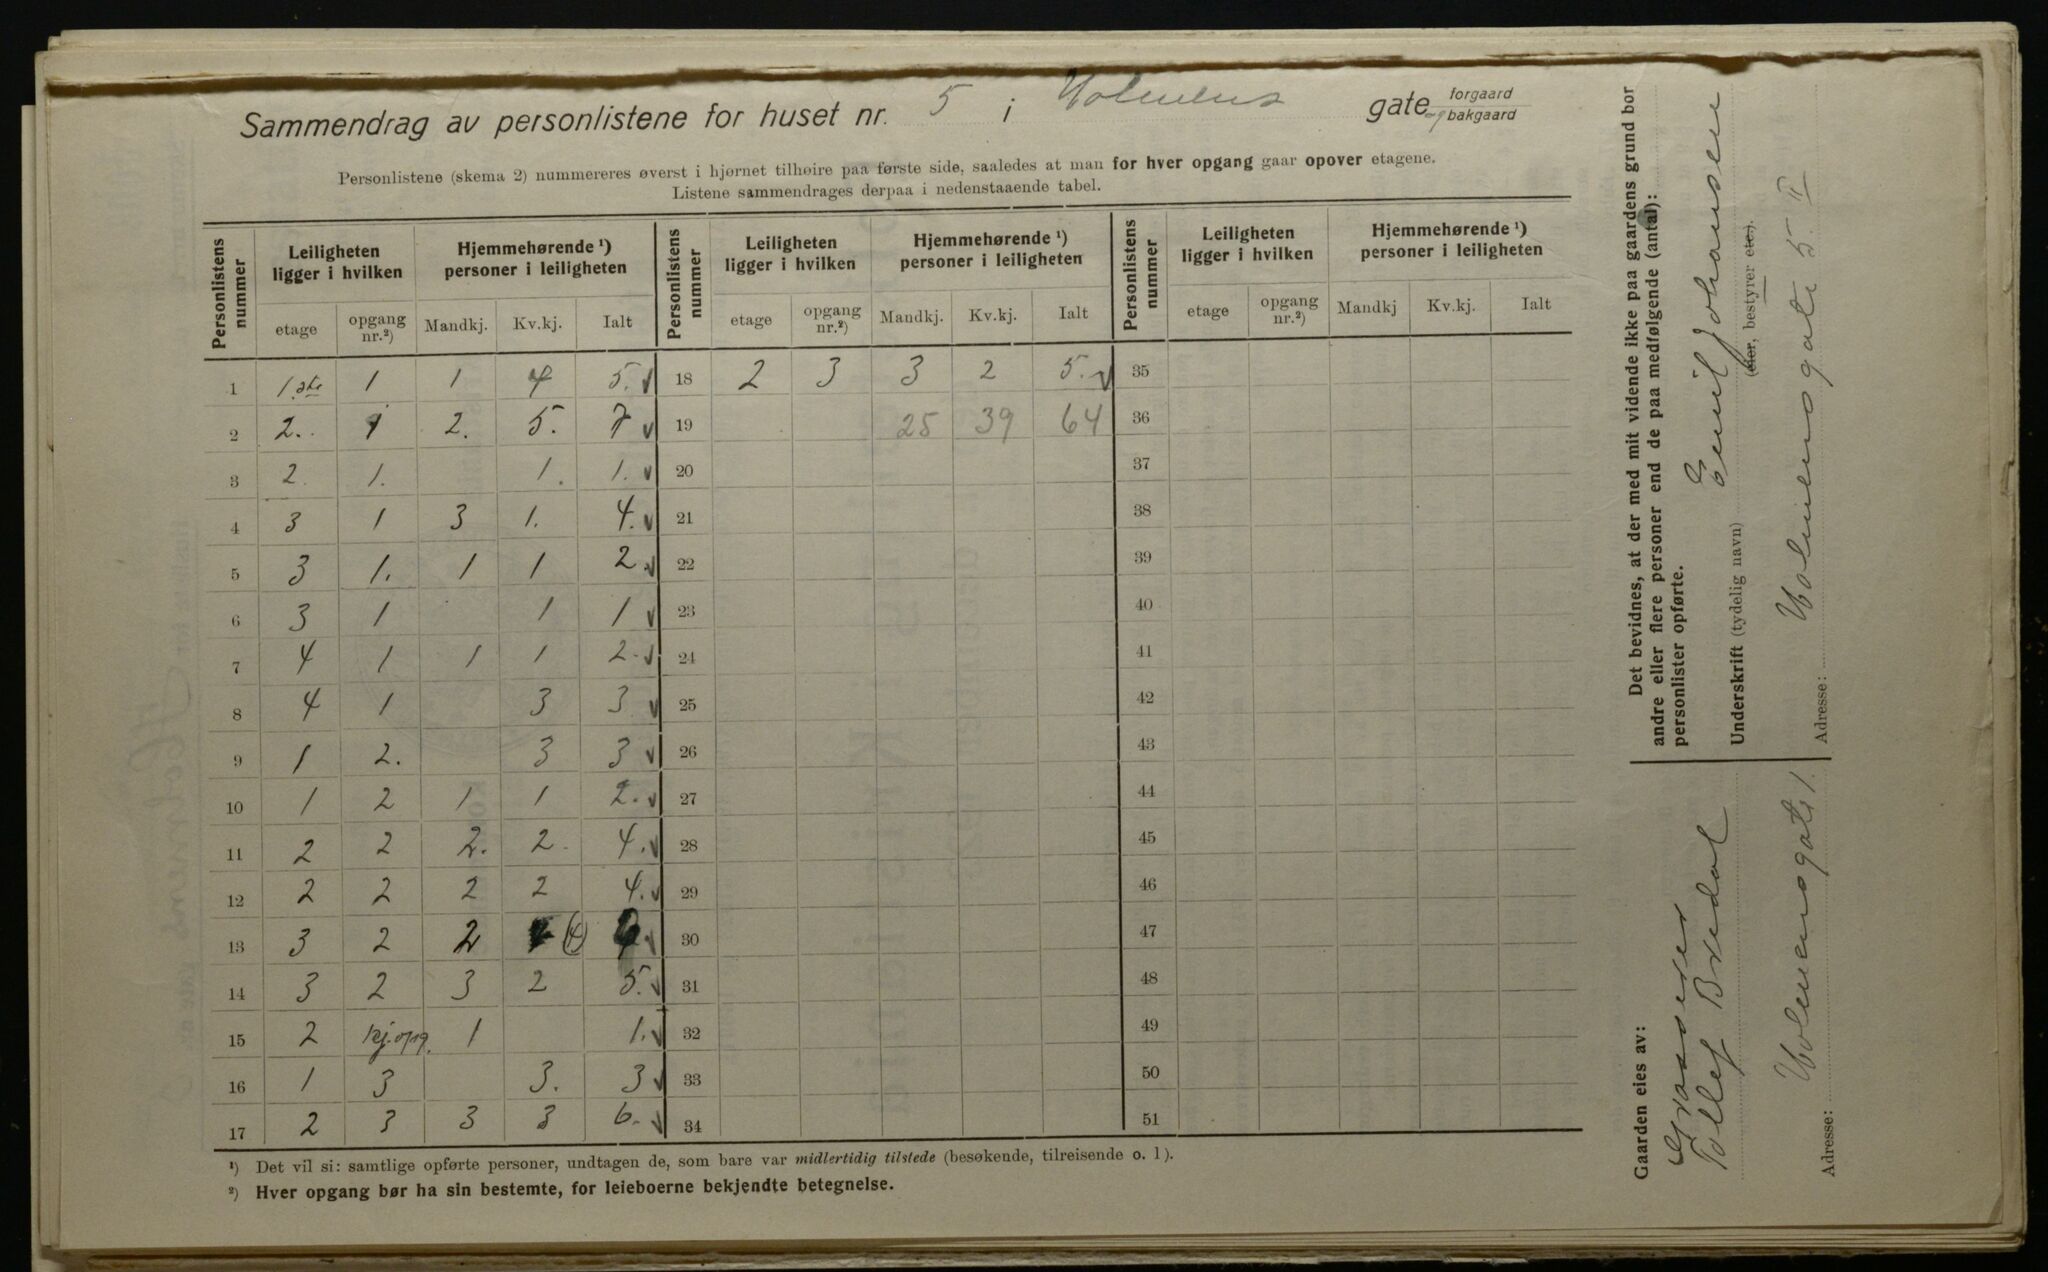 Sammendrag av personlistene for huset nr. 5 i Holmens gate forgaard og bakgaard
Personlistene (skema 2) nummereres øverst i hjørnet tilhøire paa første side, saaledes at man for hver opgang gaar opover etagene.
Listene sammendrages derpaa i nedenstaaende tabel.
Personlistens nummer | Leiligheten ligger i hvilken | Hjemmehørende ¹) personer i leiligheten | Personlistens nummer | Leiligheten ligger i hvilken | Hjemmehørende ¹) personer i leiligheten | Personlistens nummer | Leiligheten ligger i hvilken | Hjemmehørende ¹) personer i leiligheten
etage | opgang nr.²) | Mandkj. | Kv.kj. | Ialt | etage | opgang nr.²) | Mandkj. | Kv.kj. | Ialt | etage | opgang nr.²) | Mandkj | Kv.kj. | Ialt
1 | 1.ste | 1 | 1 | 4 | 5. | 18 | 2 | 3 | 3 | 2 | 5. | 35
2 | 2. | 1 | 2. | 5. | 7 | 19 | | | 25 | 39 | 64 | 36
3 | 2 | 1. | | 1. | 1. | 20 | 37
4 | 3 | 1 | 3 | 1. | 4. | 21 | 38
5 | 3 | 1. | 1 | 1 | 2. | 22 | 39
6 | 3 | 1 | | 1 | 1 | 23 | 40
7 | 4 | 1 | 1 | 1 | 2. | 24 | 41
8 | 4 | 1 | | 3 | 3 | 25 | 42
9 | 1 | 2. | | 3 | 3 | 26 | 43
10 | 1 | 2 | 1 | 1 | 2. | 27 | 44
11 | 2 | 2 | 2. | 2. | 4. | 28 | 45
12 | 2 | 2 | 2 | 2 | 4. | 29 | 46
13 | 3 | 2 | 2 | (4) | | 30 | 47
14 | 3 | 2 | 3 | 2 | 5. | 31 | 48
15 | 2 | kj.opg. | 1 | | 1. | 32 | 49
16 | 1 | 3 | | 3. | 3 | 33 | 50
17 | 2 | 3 | 3 | 3 | 6. | 34 | 51
¹) Det vil si: samtlige opførte personer, undtagen de, som bare var midlertidig tilstede (besøkende, tilreisende o. l).
²) Hver opgang bør ha sin bestemte, for leieboerne bekjendte betegnelse.
Det bevidnes, at der med mit vidende ikke paa gaardens grund bor
andre eller flere personer end de paa medfølgende (antal):
personlister opførte.
Underskrift (tydelig navn) Emil Johansen
(eier, bestyrer etc.).
Adresse: Holmensgate 5 II
Gaarden eies av:
Grosserer
Tollef Bredal
Adresse: Holmensgate 1.